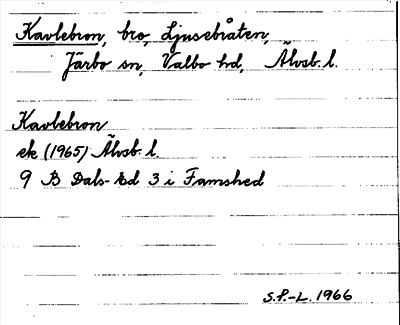 Kavlebron, bro, Ljusebråten,
Järbo sn, Valbo hd, Älvsb. l.
Kavlebron
ek (1965) Älvsb. l.
9 B Dals-Ed 3 i Famshed
S.P.-L. 1966